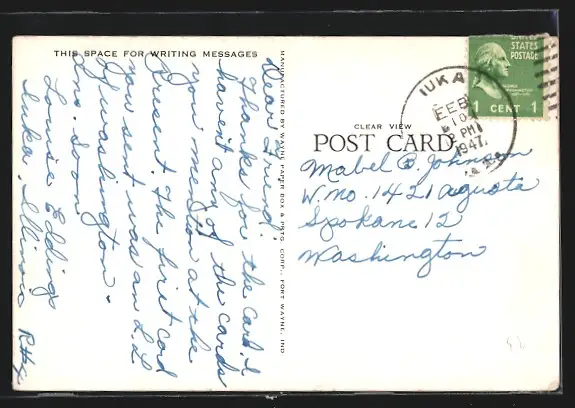 THIS SPACE FOR WRITING MESSAGES
Dear Friend;
Thanks for the Card. I
havent any of the cards
you mention at the
Present. The first card
you sent was an L.L
of Washington.
Ans. soon.
Louise Eddings
Iuka, Illinois
MANUFACTURED BY WAYNE PAPER BOX & PRTG. CORP., FORT WAYNE, IND
CLEAR VIEW
POST CARD
IUKA
FEB
10
2 PM
1947
UNITED
STATES
POSTAGE
1 CENT 1
Mabel B. Johnson
W. no. 1421 Augusta
Spokane 12
Washington